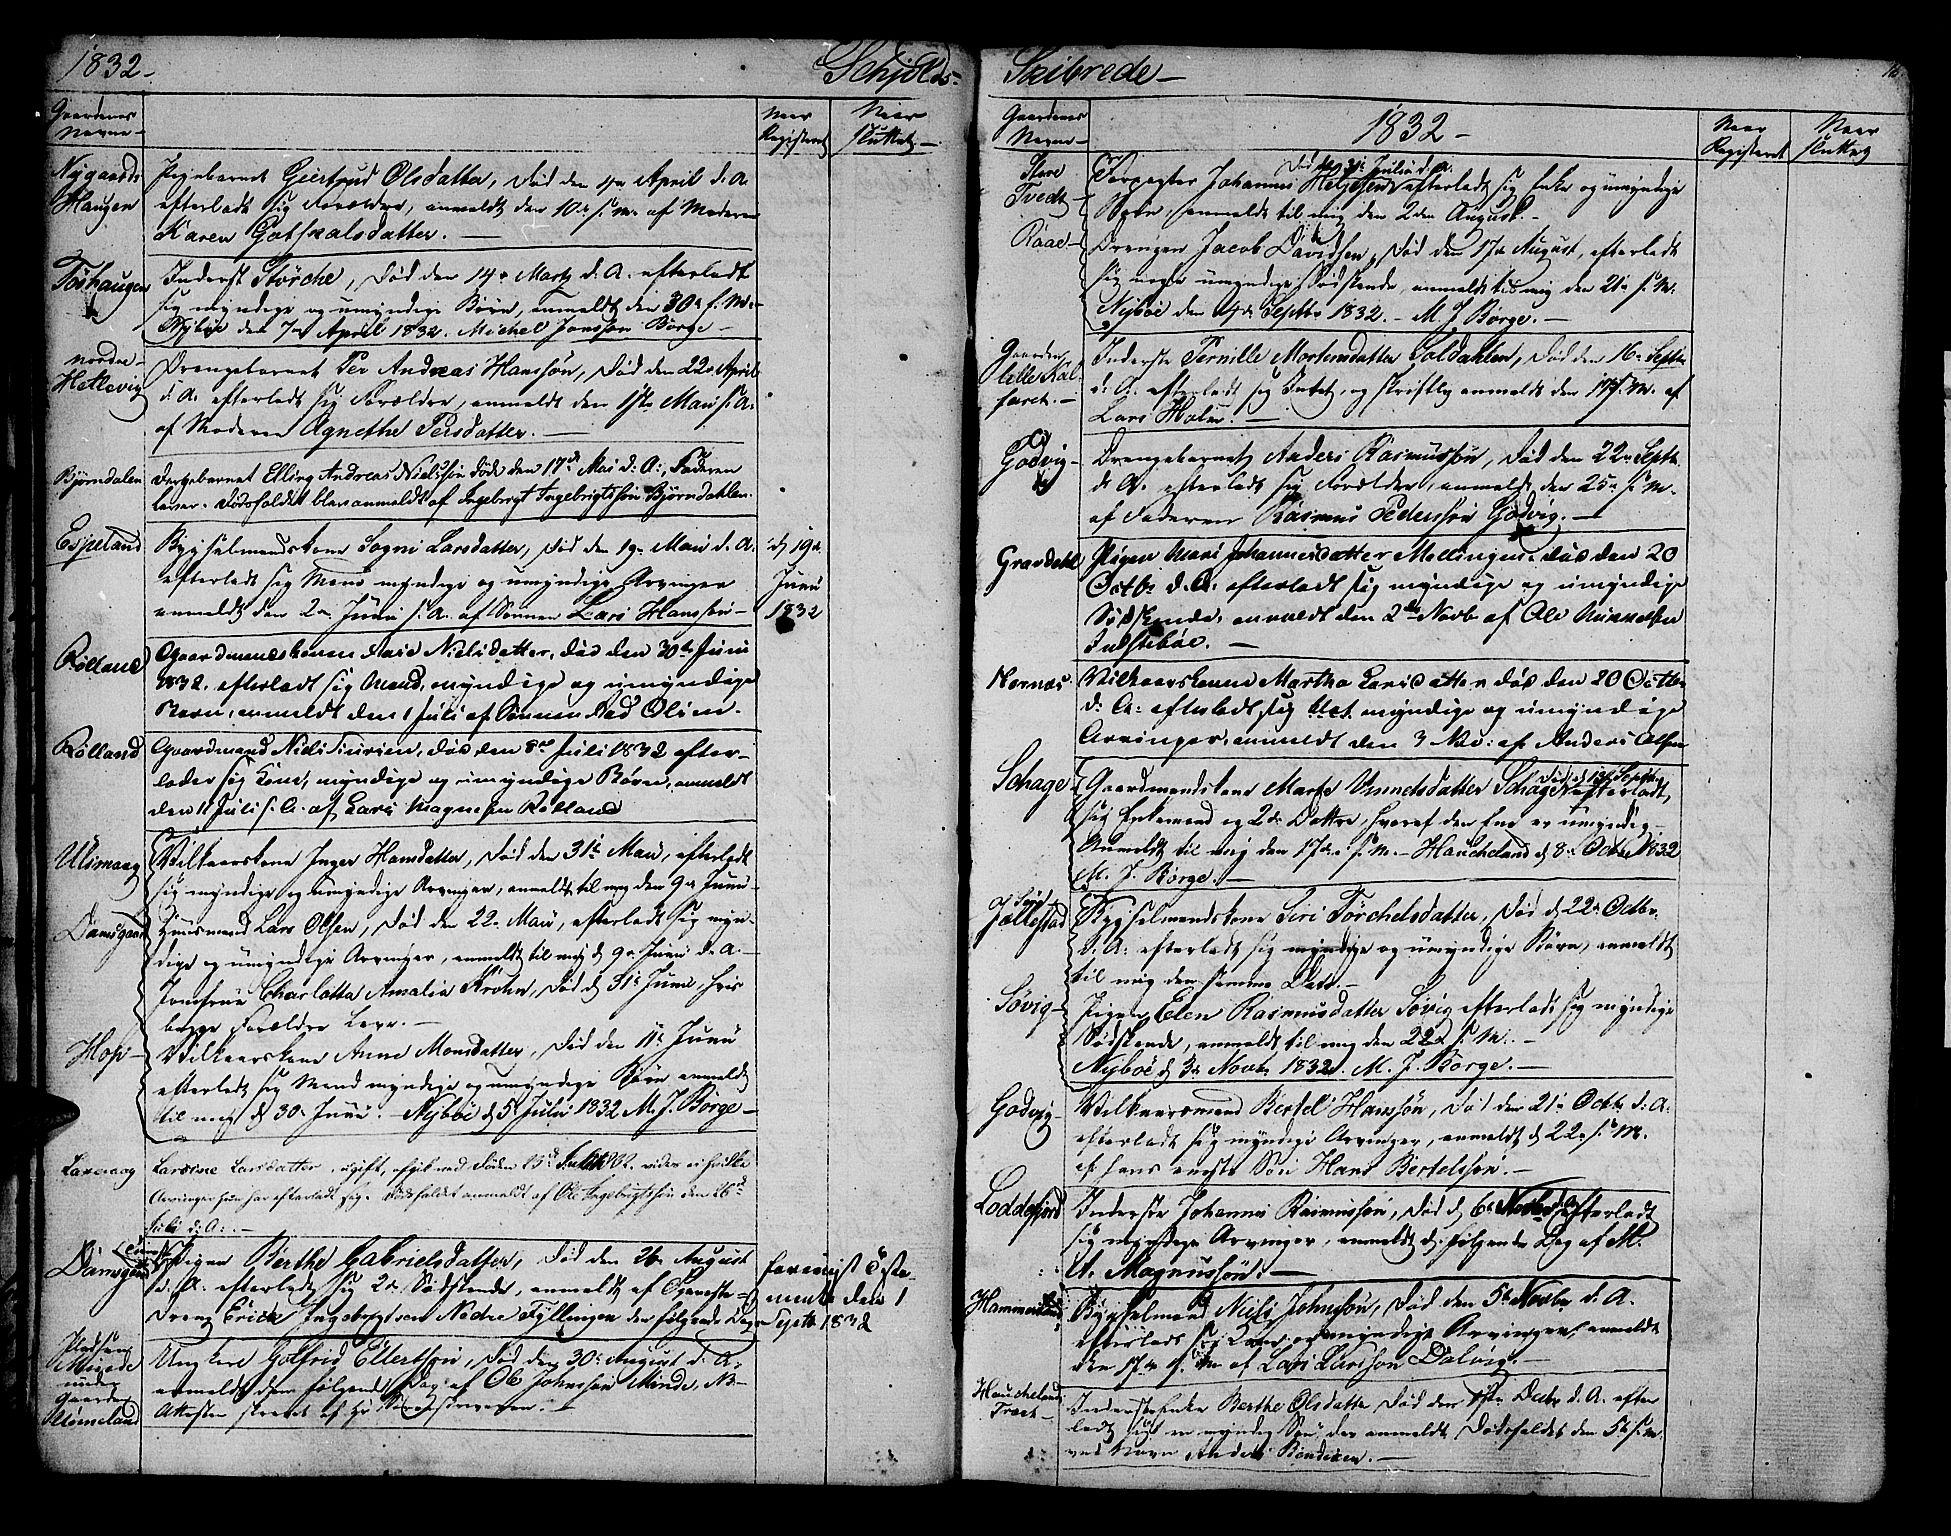 1832.
Schjolds-
Gaardenes Navne-
Naar Registeret
Naar sluttet-
Nygaards Haugen
Pigebarnet Giertrud Olsdatter, død den 4de April d. A.
efterladt sig Forældre, anmeldt den 10de s. M. af Moderen
Karen Gotskalsdatter.-
Toshaugen
Inderst Storche, død den 14de Marty d. A. efterladt
sig myndige og umyndige Børn, anmeldt den 30te s. M.-
Nyböe den 7de April 1832. Michel Jonsson Borge-
nordre- Hetlevig
Drengebarnet Per Andreas Hanssön, død den 22de April
d. A. efterladt sig Forældre, anmeldt den 1ste Mai s. A.
af Moderen Agnethe Persdatter.-
Björndalen
Drengebarnet Elling Andreas Nielssön døde den 17de Mai d: A:, Faderen
lever. Dødsfaldet blev anmeldt af Ingebrigt Ingebrigtssön Björndahlen.
Espeland
Bygselmandskone Sogni Larsdatter, død den 19de Maii d. A.
efterladt sig Mand myndige og umyndige Arvinger
anmeldt den 2de Junii s. A. af Sønnen Lars Hanssön-
d 19de
Junii
1832
Rölland
Gaardmandskonen Mari Nielsdatter, død den 30te Juni
1832. efterladt sig Mand, myndige og umyndige
Børn, anmeldt den 1 Juli af Sønnen Olsen.
Rölland
Gaardmand Niels død den 8de Juli 1832 efter-
lader sig Kone, myndige og umyndige Børn, anmeldt
den 11 Juli s. A. af Lars Magnesen Rölland
Ulsmaag
Vilkaarskone Inger Hansdatter, død den 31te Maii, efterladt
sig myndige og umyndige Arvinger, anmeldt til mig den 9de Junii-
Damsgaard
Huusmand Lars Olsen, død den 22de Maii, efterladt sig myn-
dige og umyndige Arvinger, anmeldt til mig d 9de Junii d. A.-
Jomfrue Charlotta Amalia Krohn, død d 31te Junii, hvis
begge Forældre lever.-
Hop-
Vilkaarskone Anne Monsdatter, død den 11te Junii
efterladt sig Mand myndige og umyndige Børn anmeldt
til mig d 30te Junii. Nyböe d 5te Julii 1832 M. J. Borge-
Larsine Larsdatter, ugift, afgik ved Døden 13de Juli 1832. vides ei hvilke
Arvinger hun har efterladt sig. Dødsfaldet anmeldt af Ole Ingebrigtsön den 26de
Juli d: A:.-
Damsgaard
Pigen Berthe Gabrielsdatter, død den 26de August
d. A. efterladt sig 2de Sødskende, anmeldt af
Dreng Erick Ingebrigtsen Nedre Fyllingen den følgende Dag-
foreviist
den 1
Septb 1832
Pladsen Minde under Gaarden
Ungkarl Gotfrid Ellertsön, død den 30te August d. A.
anmeldt den følgende Dag af Ole Johnssön Minde, NB
Attesten skrevet af Hr Sorenskriveren.-
Skibrede-
Gaardenes Navne-
1832-
Naar Registeret
Naar sluttet
Store Tvedt-
død den 31te Julii d. A.
Forpagter Johannes Helgesen efterladt sig Enke og umyndige
Børn, anmeldt til mig den 2den August.-
Raae-
Drengen Jacob Davidsen, død den 17de August, efterladt
sig nogle umyndige Sødskende, anmeldt til mig den 21de s. M.
Nyböe den 4de Septbr 1832.- M. J. Borge.-
Gaarden lille Kalfaret.-
Inderste Pernille Mortensdatter Soldahlen, død den 16de Septbr
d. A. efterladt sig Intet, og skriftlig anmeldt den 17de s. M. af
Lars Holm.-
Godvig-
Drengebarnet Anders Rasmussön, død den 22de Septb.
d. A. efterladt sig Forældre, anmeldt den 25de s. M.
af Faderen Rasmus Pederssön Godvig.-
Gravdahl
Pigen Mari Johannesdatter Mellingen død den 20
Octbr d. A: efterladt sig myndige og umyndige
Sødskende, anmeldt den 2de Novb af Ole
-
Hornæs
Vilkaarskonen Martha Larsdatter død den 20 Octbr
d: A: efterladt sig myndige og umyndige
Arvinger, anmeldt den 3 Nov: af Anders Olsen
Schage
død d 13de Septbr
Gaardmandskone Marte Unnelsdatter Schage efterladt,
sig Enkemand og 2de Døttre, hvoraf den Ene er umyndig-
Anmeldt til mig den 17de s. M.- Haucheland d 8de Octbr 1832
M. J. Borge.-
Bygselmandskone Siri Torchelsdatter, død d 22de Octbr.
d. A. efterladt sig myndige og umyndige Børn, anmeldt
til mig den samme Dato.-
Sövig-
Pigen Elen Rasmusdatter Sövig efterladt sig myndige
Sødskende, anmeldt til mig den 22de s. M.-
Nyböe d 3de Novbr 1832. M. J. Borge.-
Godvig-
Vilkaarsmand Bertel Hanssön, død den 21de Octbr d. A.
efterladt sig myndige Arvinger, anmeldt d 22de s. M.
af hans eneste Søn Hans Bertelssön.-
Loddefjord
Inderste Johannes Rasmussön, død d 6te Novbr d. A. efterladt
sig myndige Arvinger, anmeldt d. følgende Dag af M.
A. Magnussön.-
Hammersland
Bygselmand Niels Johnssön, død den 5te Novbr d. A.
efterlod sig Kone og umyndige Arvinger, anmeldt
den 17de s. M. af Lars Larsson Dalvig.-
Hauchelands Træet-
Inderste Enke Berthe Olsdatter død den 1ste Decbr d. A. efter
ladt sig en myndig Søn, der anmeldt Dødsfaldet den 5te s. M.
ved Navn Anders Bendixen.-